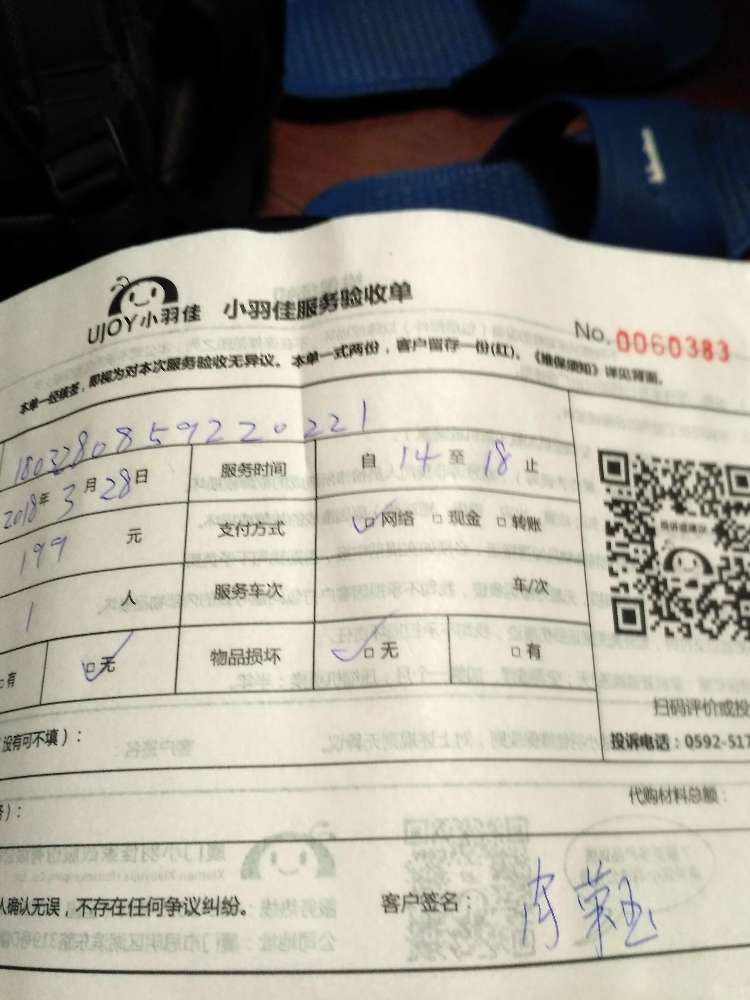 UJOY小羽佳 小羽佳服务验收单
No. 0060383
本单一经核签，即视为对本次服务验收无异议。本单一式两份，客户留存一份(红)。《维保须知》详见背面。
180328085922022​1
2018年3月28日 服务时间 自 14 至 18 止
199 元 支付方式 □网络 □现金 □转账
1 人 服务车次 车/次
□有 □无 物品损坏 □无 □有
扫码评价或投
没有可不填）：
投诉电话：0592-517
代购材料总额：
人确认无误，不存在任何争议纠纷。 客户签名：